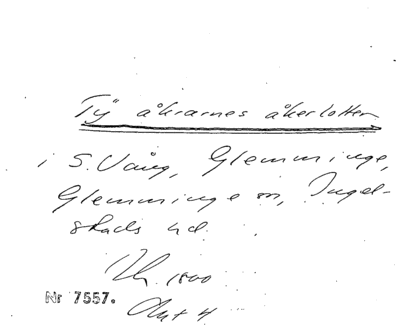 Tyåkrarnes åkerlotter
i S. Vång, Glemminge,
Glemminge sn, Ingel-
stads hd.
1800
Nr 7557.
Akt 4